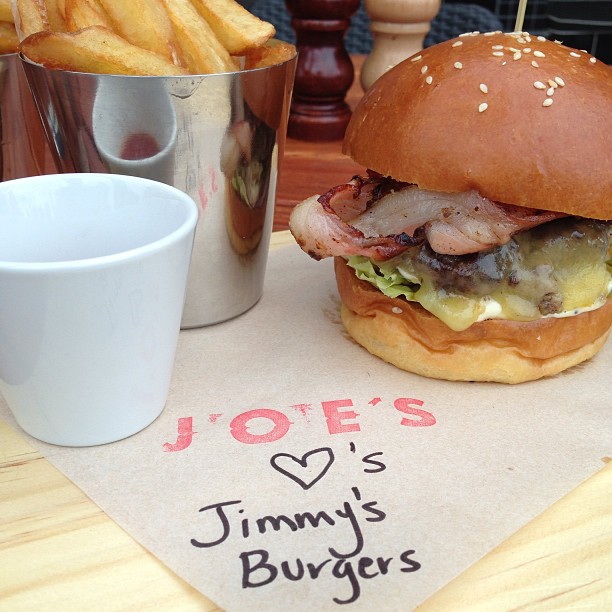 JOE'S
♡'s
Jimmy's
Burgers